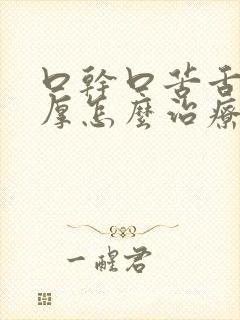 口幹口苦舌
厚怎麽治療
一醒君